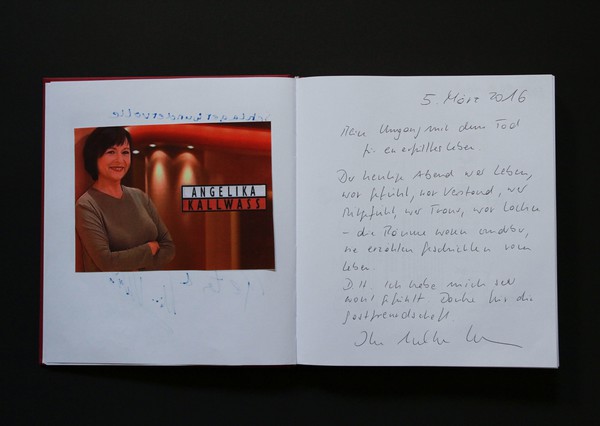 ANGELIKA
KALLWASS
5. März 2016
Mein Umgang mit dem Tod
für ein erfülltes Leben
Der heutige Abend war Leben,
war Gefühl, war Verstand, war
Mitgefühl, war Trauer, war Lachen
– die Räume waren wunderbar,
sie erzählen Geschichten vom
Leben.
D.h. Ich habe mich sehr
wohl gefühlt. Danke für die
Gastfreundschaft.
Ihre